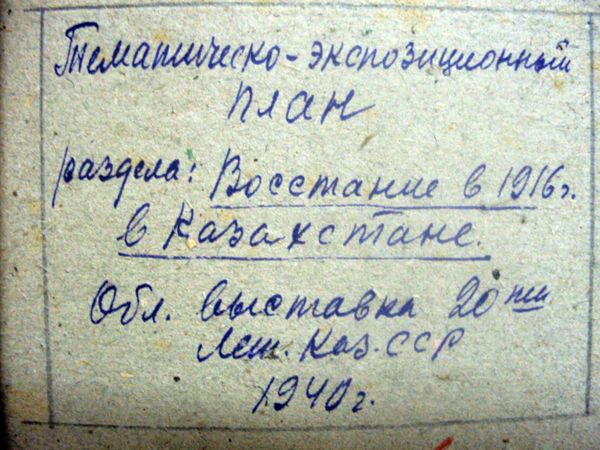 Тематическо-экспозиционный
план
раздела: Восстание в 1916г.
в Казахстане.
Обл. выставка 20ти
Лет. Каз.ССР
1940г.